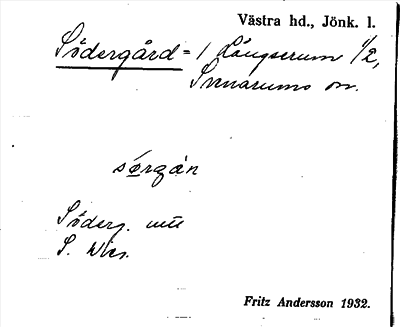 Västra hd., Jönk. l.
Södergård = 1 Långserum 1/2,
Svenarums sn.
sørgán
Söderg.
S.
Fritz Andersson 1932.